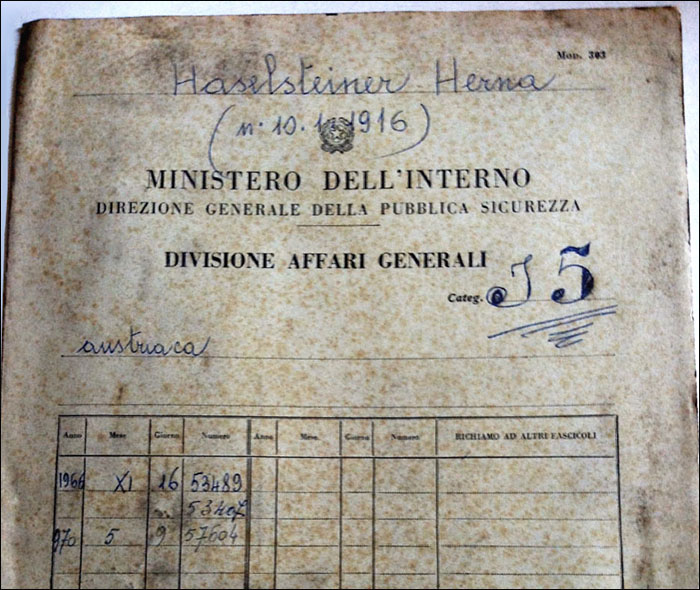 Mod. 303
Haselsteiner Herna
(n. 10.1.1916)
MINISTERO DELL'INTERNO
DIREZIONE GENERALE DELLA PUBBLICA SICUREZZA
DIVISIONE AFFARI GENERALI
Categ. J5
austriaca
Anno Mese Giorno Numero Anno Mese Giorno Numero RICHIAMO AD ALTRI FASCICOLI
1966 XI 16 53489
970 5 9 57604